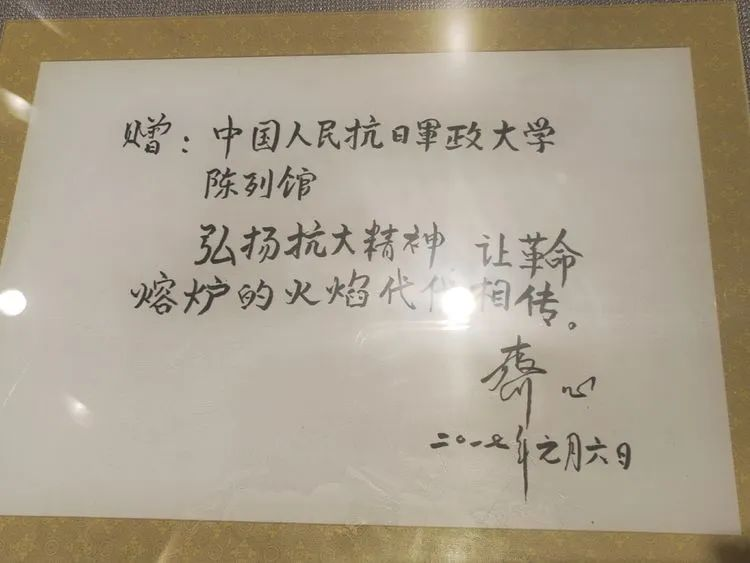 赠：中国人民抗日軍政大学
陈列馆
弘扬抗大精神 让革命
熔炉的火焰代代相传。
齐心
二〇一七年元月六日